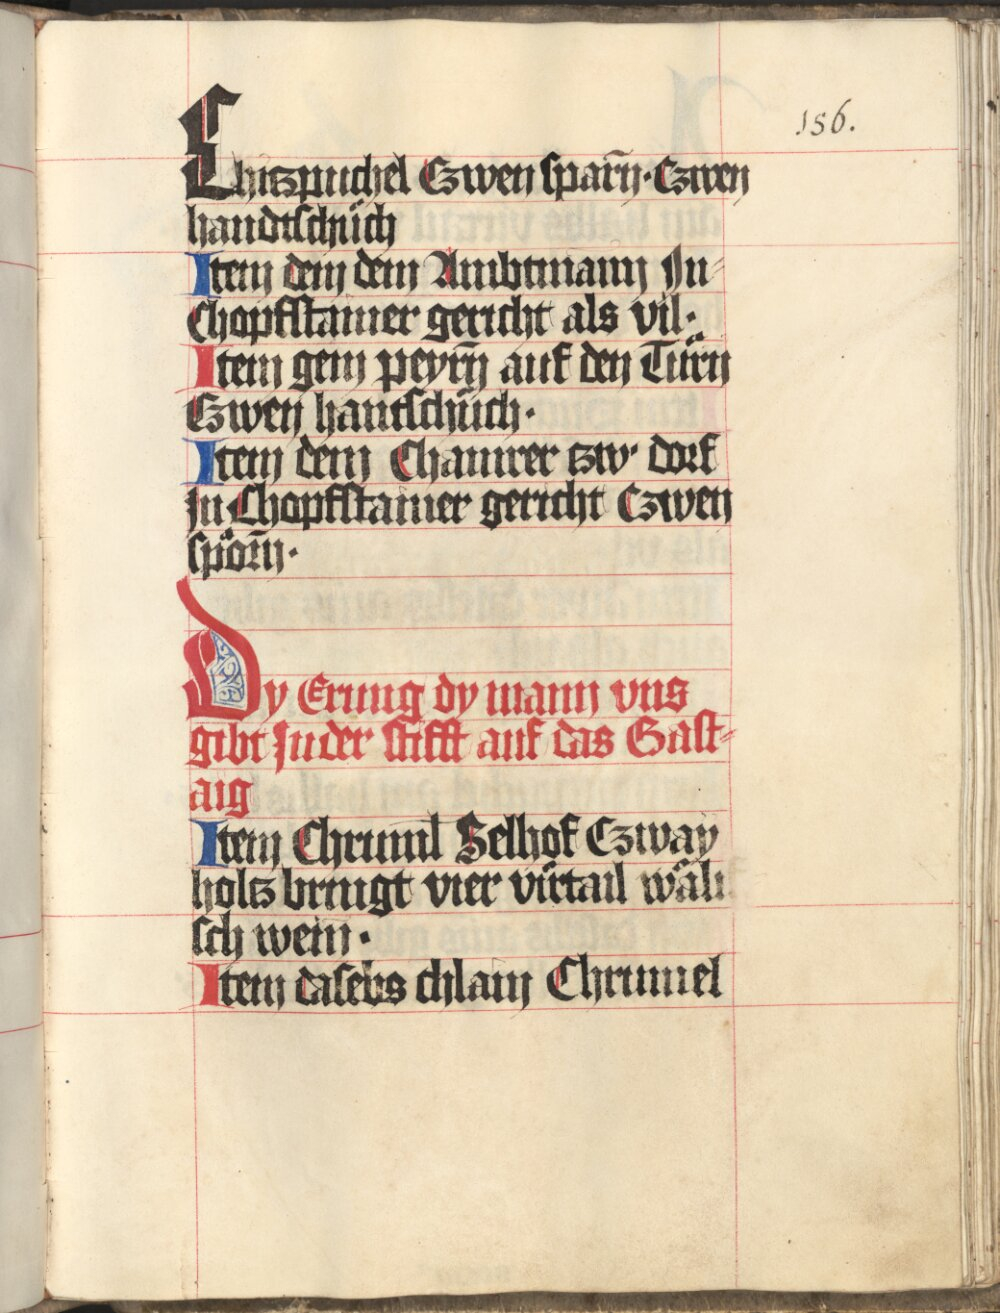 156.
Chitzpuchel Czwen sparn̄. Czwen
handtschuͤch
Item dem dem Ambtmann In-
Chopfstainer gericht als vil.
Item gem peyrn̄ auf den Tuͤrn
Czwen hantschuͤch.
Item dem Chamrer tzw dorf
In Chopfstainer gericht Czwen
sporn̄.
Dy Erung dy mann vns
gibt In der stifft auf das Gast-
aig
Item Chruml Selhof Czway
holtz bringt vier viͤrtail waͤli
sch wein.
Item daselbs chlain Chrumel